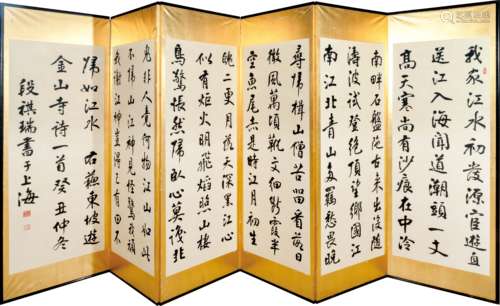 我家江水初發源宦遊直
送江入海聞道潮頭一丈
高天寒尚有沙痕在中泠
南畔石盤陀古來出没隨
濤波試登絶頂望鄉國江
南江北青山多羈愁畏晚
尋歸楫山僧苦留看落日
微風萬頃靴文細斷霞半
空魚尾赤是時江月初生
魄二更月落天深黑江心
似有炬火明飛焰照山棲
鳥驚悵然歸臥心莫識非
鬼非人竟何物江山如此
不歸山江神見怪驚我頑
我謝江神豈得已有田不
歸如江水 右蘇東坡遊
金山寺詩一首癸丑仲冬
段祺瑞書于上海